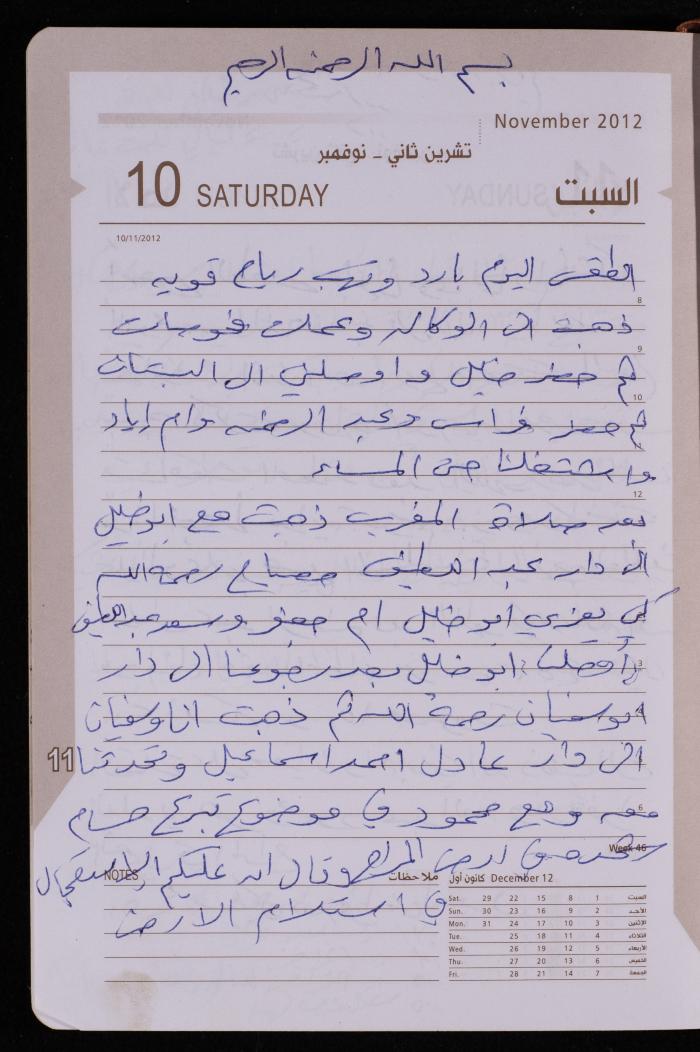 بسم الله الرحمن الرحيم
November 2012
تشرين ثاني - نوفمبر
10 SATURDAY السبت
10/11/2012
الطقس اليوم بارد وتهب رياح قويه
8
ذهبت الى الوكاله وعملت فحوصات
9
ثم حضر خليل واوصلني الى البستان
10
ثم حضر فراس وعبد الرحمن وام اياد
واشتغلنا حتى المساء
12
بعد صلاة المغرب ذهبت مع ابو خليل
الى دار عبد اللطيف مصباح رحمه الله
لكي يعزي ابو خليل ام جعفر وسعد عبد اللطيف
اوصلنا ابو خليل بعد رجوعنا الى دار
3
ابو سفيان رحمة الله ثم ذهبت انا وسفيان
4
الى دار عادل احمد اسماعيل وتحدثنا
11
معه ومع محمود في موضوع تبرع حسام
6
في ارض المراح وقال انه عليكم الاستعجال
Week 46
في استلام الارض
NOTES ملاحظات
December 12 كانون أول
Sat. 29 22 15 8 1 السبت
Sun. 30 23 16 9 2 الأحد
Mon. 31 24 17 10 3 الإثنين
Tue. 25 18 11 4 الثلاثاء
Wed. 26 19 12 5 الأربعاء
Thu. 27 20 13 6 الخميس
Fri. 28 21 14 7 الجمعة